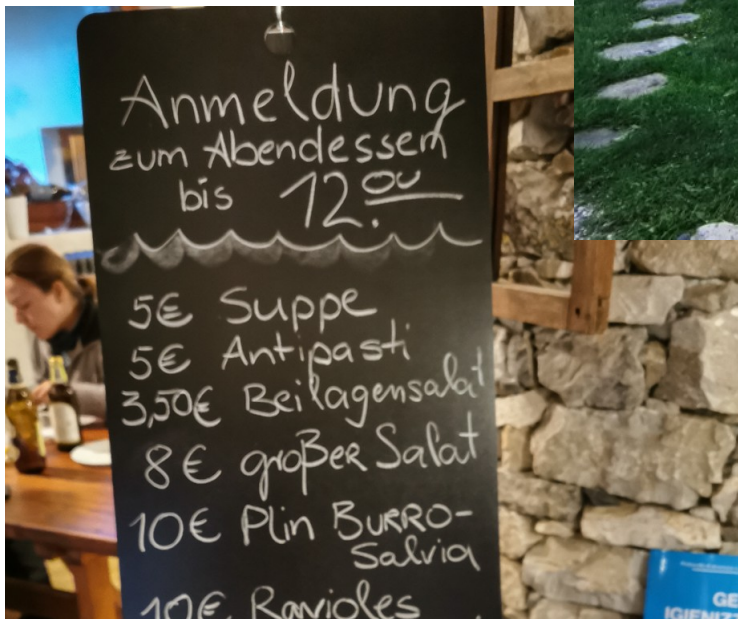 Anmeldung
zum Abendessen
bis 12.00
5€ Suppe
5€ Antipasti
3,50€ Beilagensalat
8€ großer Salat
10€ Plin BURRO-
Salvia
10€ Ravioles
GE
IGIENIZZ